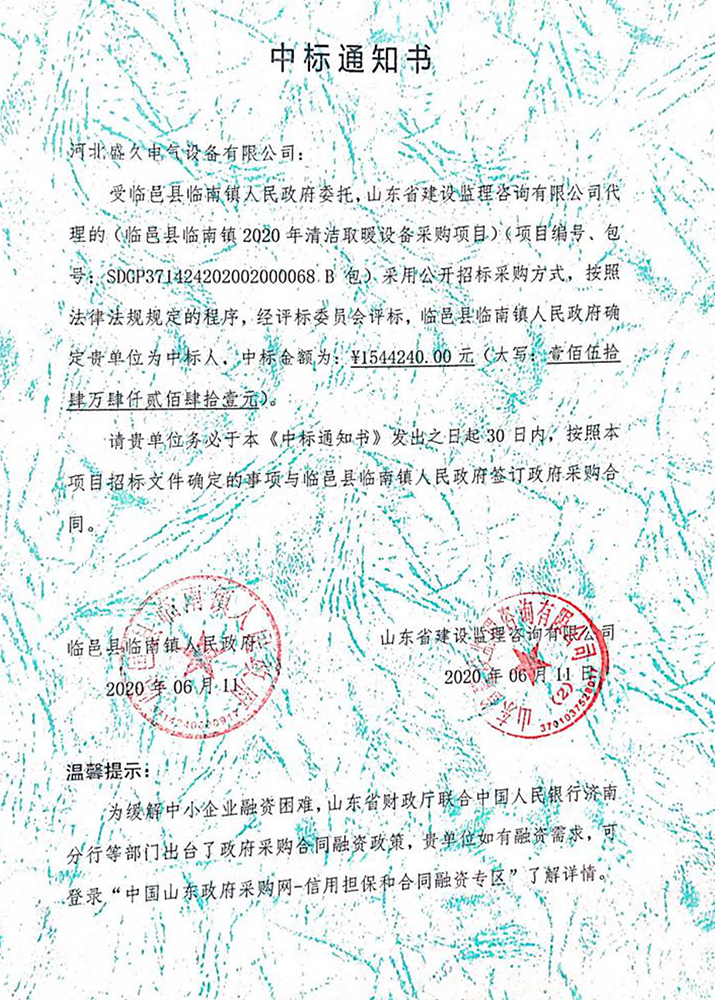 中标通知书
河北盛久电气设备有限公司：
受临邑县临南镇人民政府委托，山东省建设监理咨询有限公司代
理的（临邑县临南镇 2020 年清洁取暖设备采购项目）（项目编号、包
号：SDGP371424202002000068 B 包）采用公开招标采购方式，按照
法律法规规定的程序，经评标委员会评标，临邑县临南镇人民政府确
定贵单位为中标人，中标金额为：¥1544240.00 元（大写：壹佰伍拾
肆万肆仟贰佰肆拾壹元）。
请贵单位务必于本《中标通知书》发出之日起 30 日内，按照本
项目招标文件确定的事项与临邑县临南镇人民政府签订政府采购合
同。
临邑县临南镇人民政府
2020 年 06 月 11
山东省建设监理咨询有限公司
2020 年 06 月 11 日
山东省建设监理咨询有限公司
(2)
3701037528017
温馨提示：
为缓解中小企业融资困难，山东省财政厅联合中国人民银行济南
分行等部门出台了政府采购合同融资政策，贵单位如有融资需求，可
登录“中国山东政府采购网-信用担保和合同融资专区”了解详情。